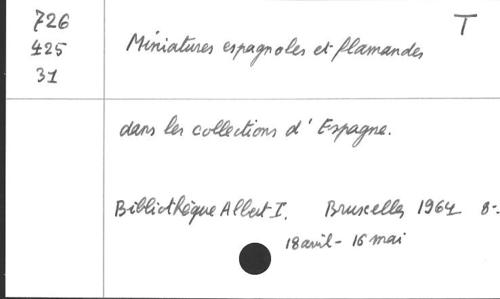 726
425
31
T
Miniatures espagnoles et flamandes
dans les collections d'Espagne.
Bibliothèque Albert I. Bruxelles 1964 8-.
18 avril - 16 mai